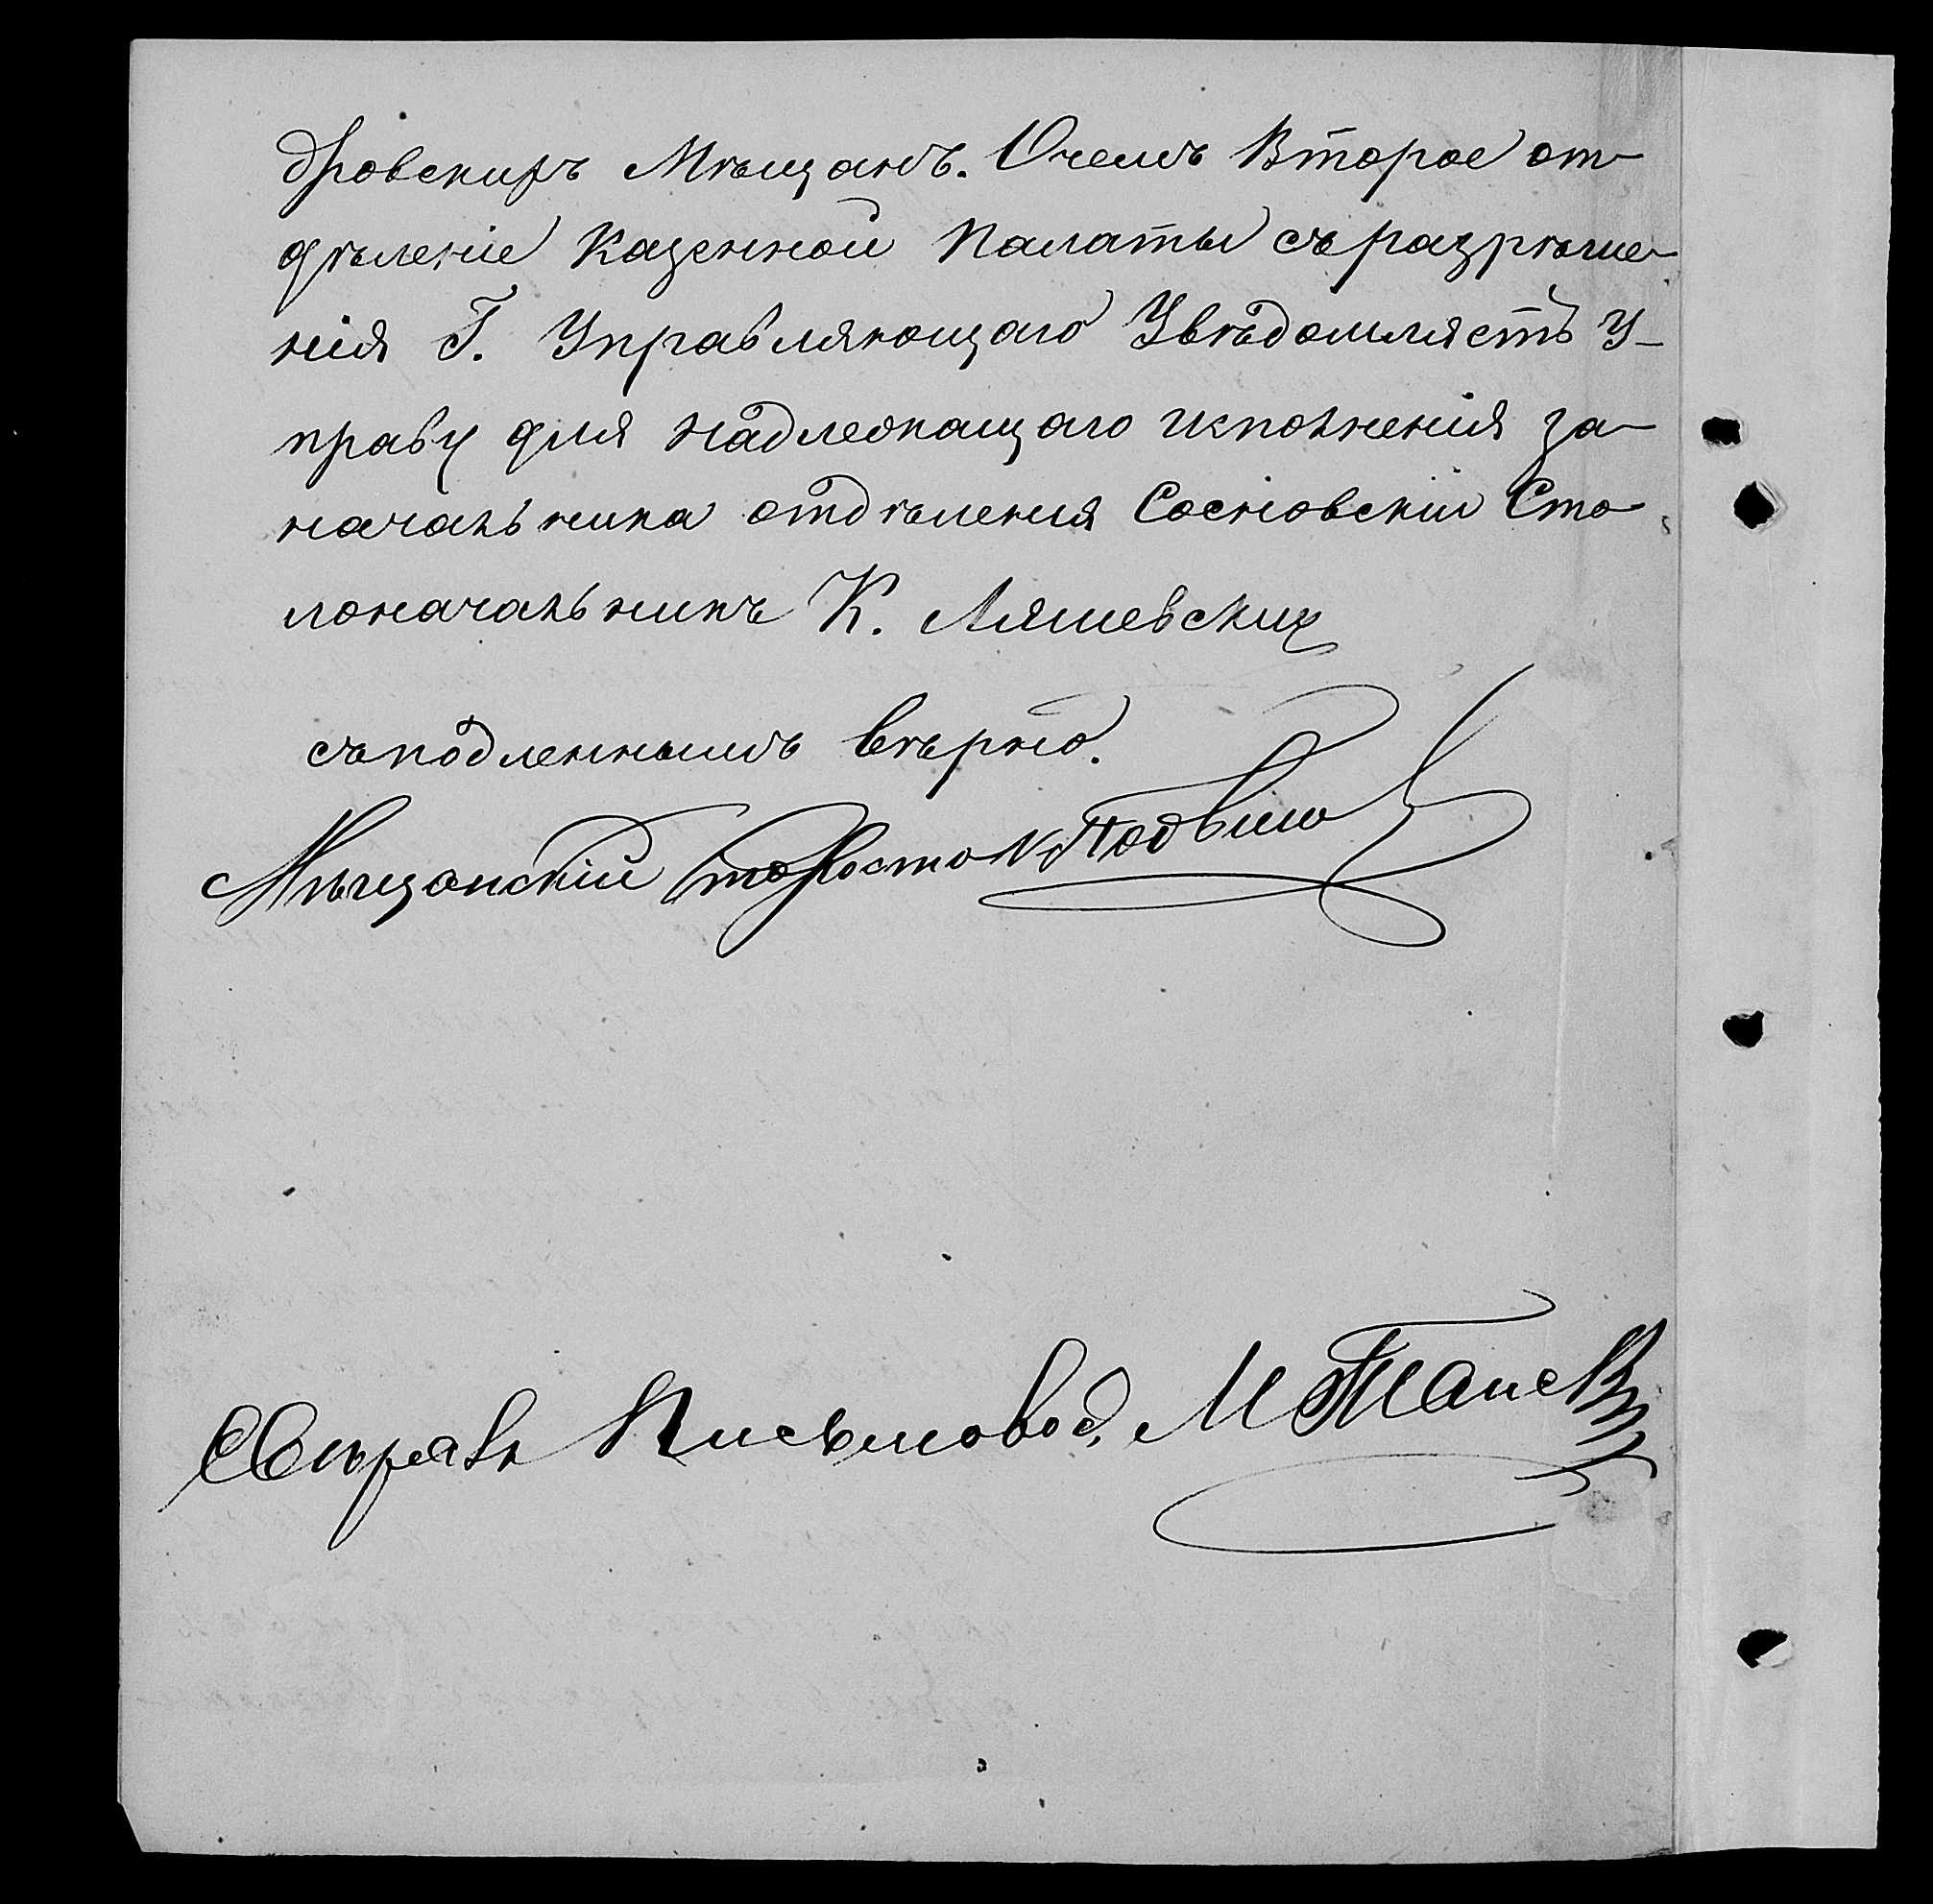 дровскихъ Мѣщанъ. Очемъ Второе от
дѣленіе Казенной Палаты съразрѣше
нія Г. Управляющаго Увѣдомляетъ У-
праву для надлежащаго исполненія за
начальника отдѣленія Сосновскій Сто
лоначальникъ К. Ляшевских
съподленнымъ вѣрно.
Мѣщанскій староста
Свѣрялъ Письмовод.